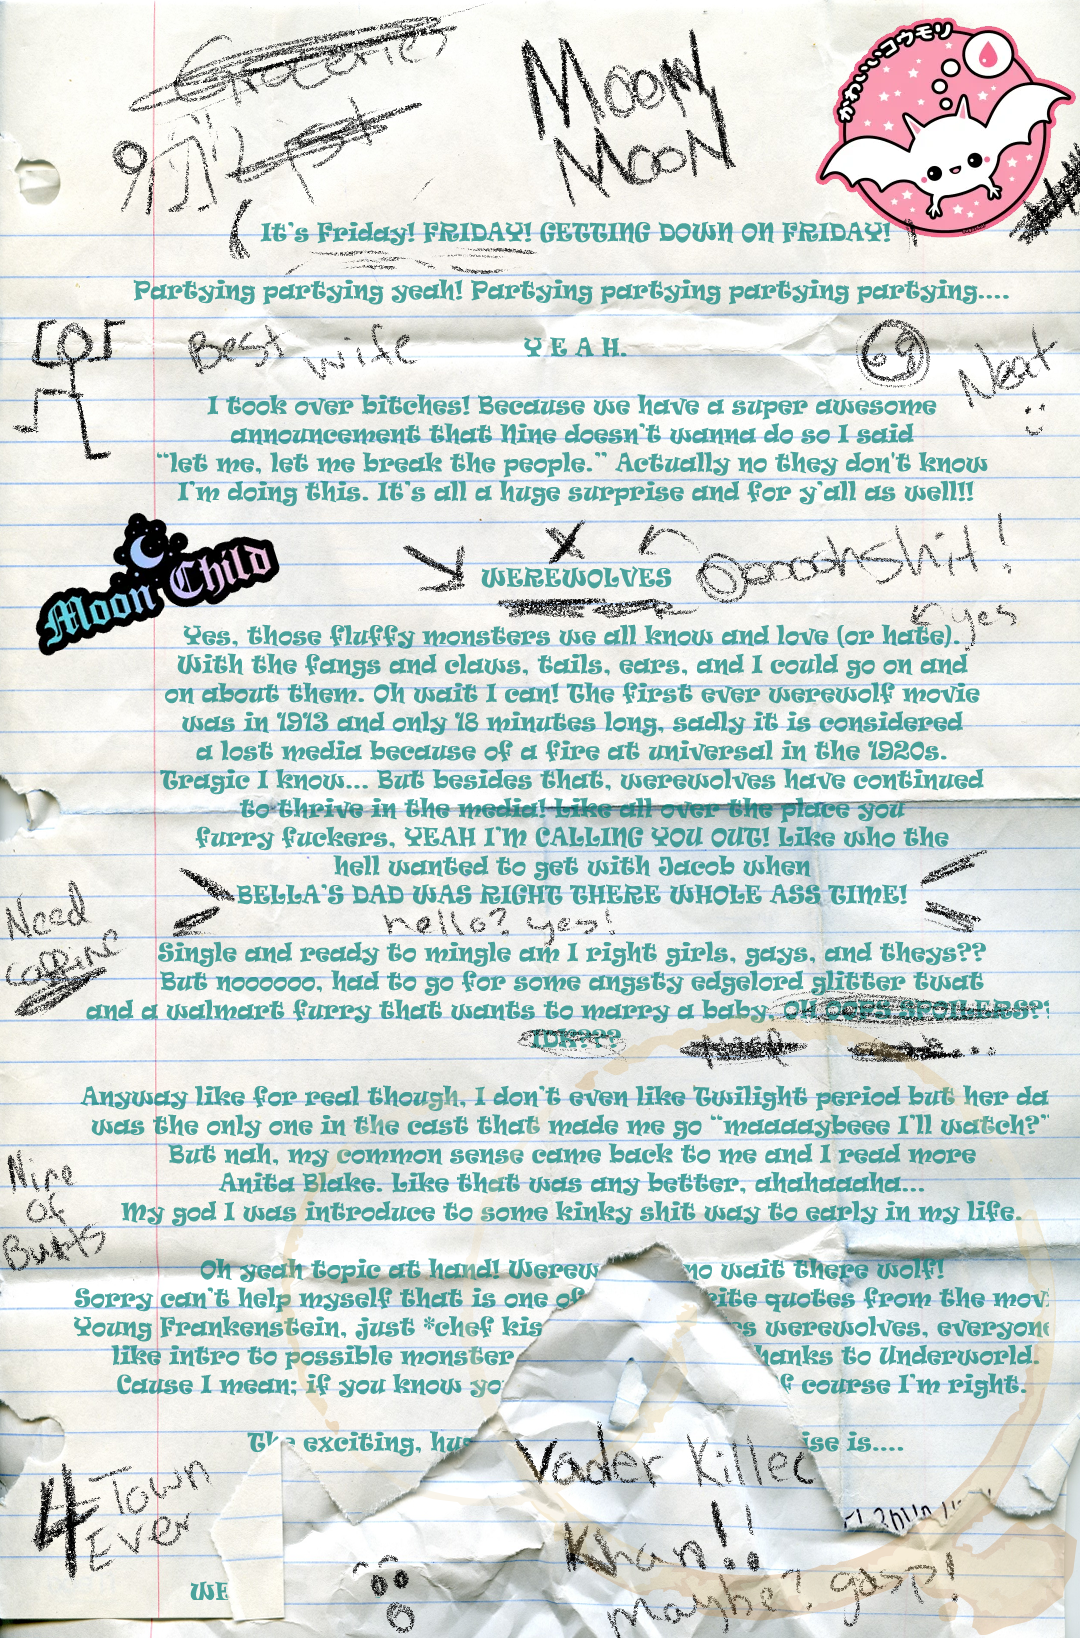 Groceries
List
Moon
Moon
かわいいコウモリ
It's Friday! FRIDAY! GETTING DOWN ON FRIDAY!
Partying partying yeah! Partying partying partying partying....
Best wife
Y E A H.
69
Neat
I took over bitches! Because we have a super awesome
announcement that Nine doesn't wanna do so I said
“let me, let me break the people.” Actually no they don't know
I'm doing this. It's all a huge surprise and for y'all as well!!
Moon Child
WEREWOLVES
Ooooohshit!
yes
Yes, those fluffy monsters we all know and love (or hate).
With the fangs and claws, tails, ears, and I could go on and
on about them. Oh wait I can! The first ever werewolf movie
was in 1913 and only 18 minutes long, sadly it is considered
a lost media because of a fire at universal in the 1920s.
Tragic I know... But besides that, werewolves have continued
to thrive in the media! Like all over the place you
furry fuckers, YEAH I'M CALLING YOU OUT! Like who the
hell wanted to get with Jacob when
BELLA'S DAD WAS RIGHT THERE WHOLE ASS TIME!
hello? yes!
Need
Caffine
Single and ready to mingle am I right girls, gays, and theys??
But noooooo, had to go for some angsty edgelord glitter twat
and a walmart furry that wants to marry a baby, OH OOPS SPOILERS??
IDK???
Anyway like for real though, I don't even like Twilight period but her da
was the only one in the cast that made me go “maaaaybeee I'll watch?”
But nah, my common sense came back to me and I read more
Anita Blake. Like that was any better, ahahaaaha...
My god I was introduce to some kinky shit way to early in my life.
Nine
Of
Butts
Oh yeah topic at hand! Werew no wait there wolf!
Sorry can't help myself that is one of rite quotes from the mov
Young Frankenstein, just *chef kis s werewolves, everyone
like intro to possible monster hanks to Underworld.
Cause I mean; if you know yo f course I'm right.
The exciting, hug ise is....
Vader Killed
Khan!!
maybe? gasp!
4 Town
Ever
WE